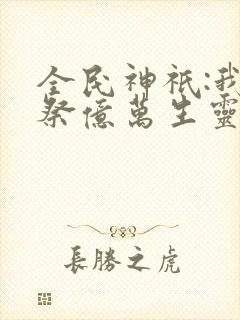 全民神祇:我
祭億萬生靈
長勝之虎